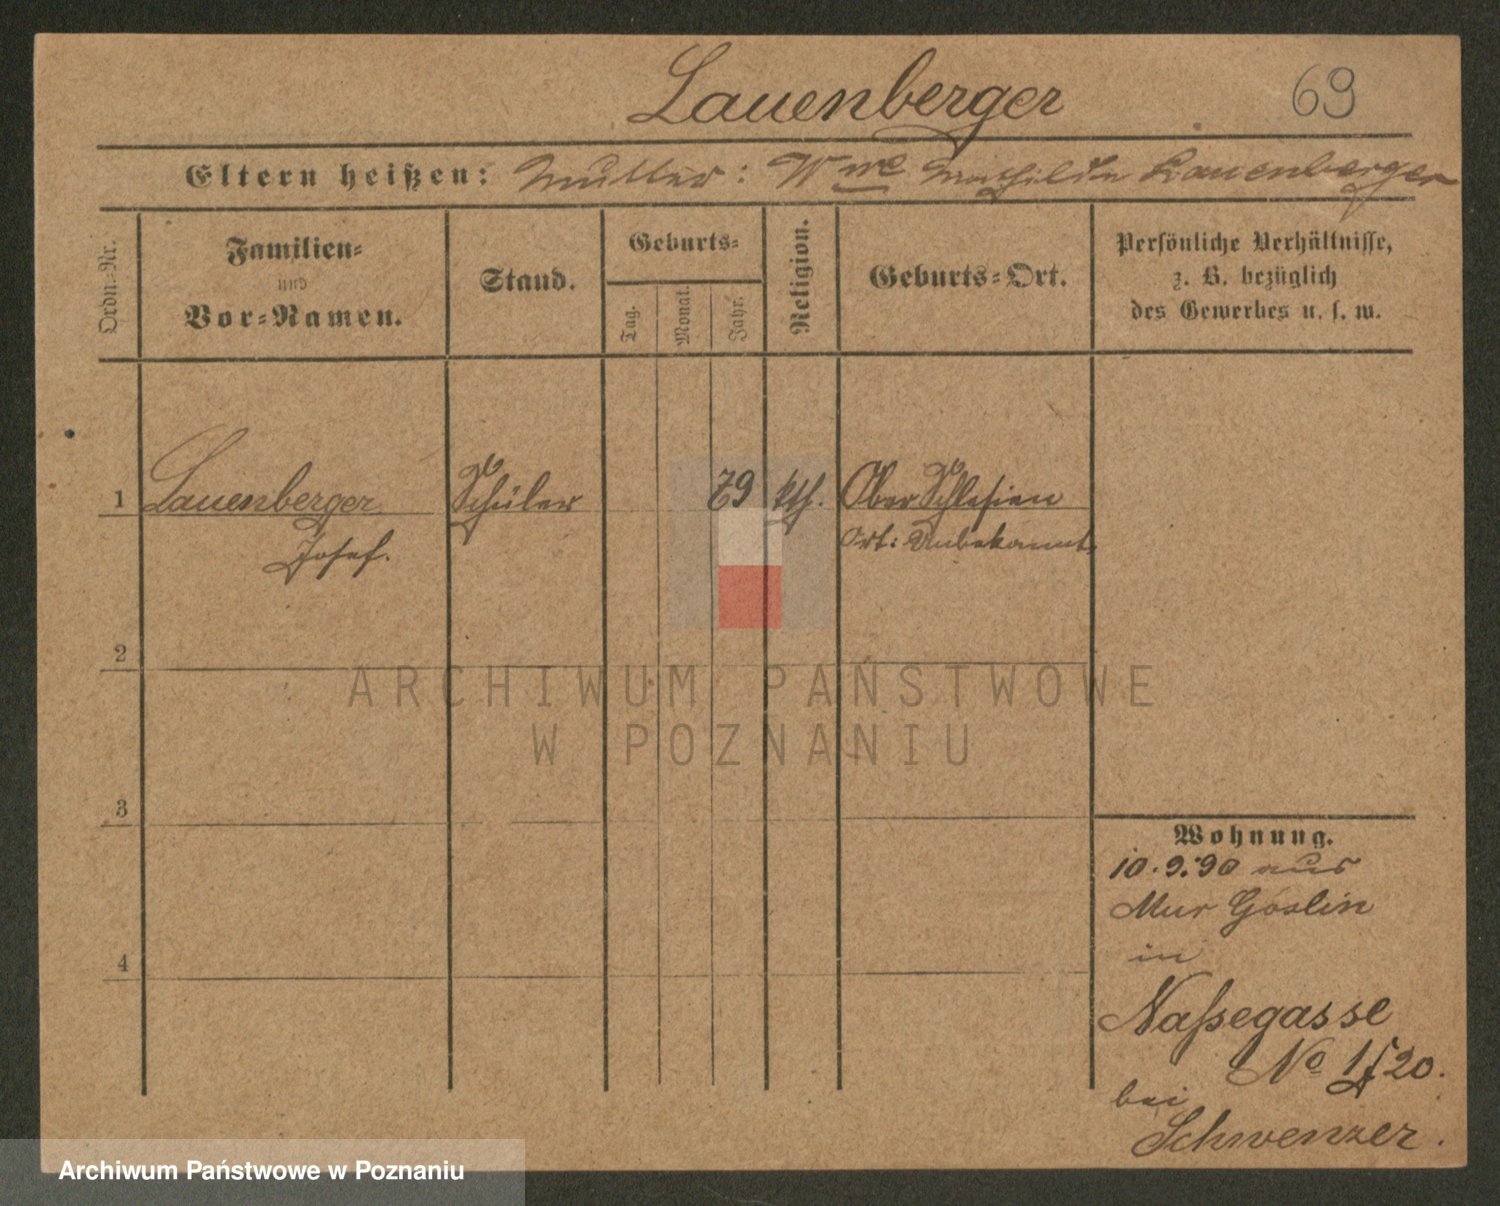 Lauenberger
69
Eltern heißen: Mutter: Wwe Mathilde Lauenberger
Ordn.-Nr.
Familien-
und
Vor-Namen.
Stand.
Geburts-
Tag.
Monat.
Jahr.
Religion.
Geburts-Ort.
Persönliche Verhältnisse,
z. B. bezüglich
des Gewerbes u. s. w.
1 Lauenberger Schüler 79 kth. Ober Schlesien
Josef. Ort: Unbekannt
2
3
4
Wohnung.
10.9.90 aus
Mur Goslin
in
Naßegasse
No 1/20.
bei
Schwenzer.
ARCHIWUM PAŃSTWOWE
W POZNANIU
Archiwum Państwowe w Poznaniu